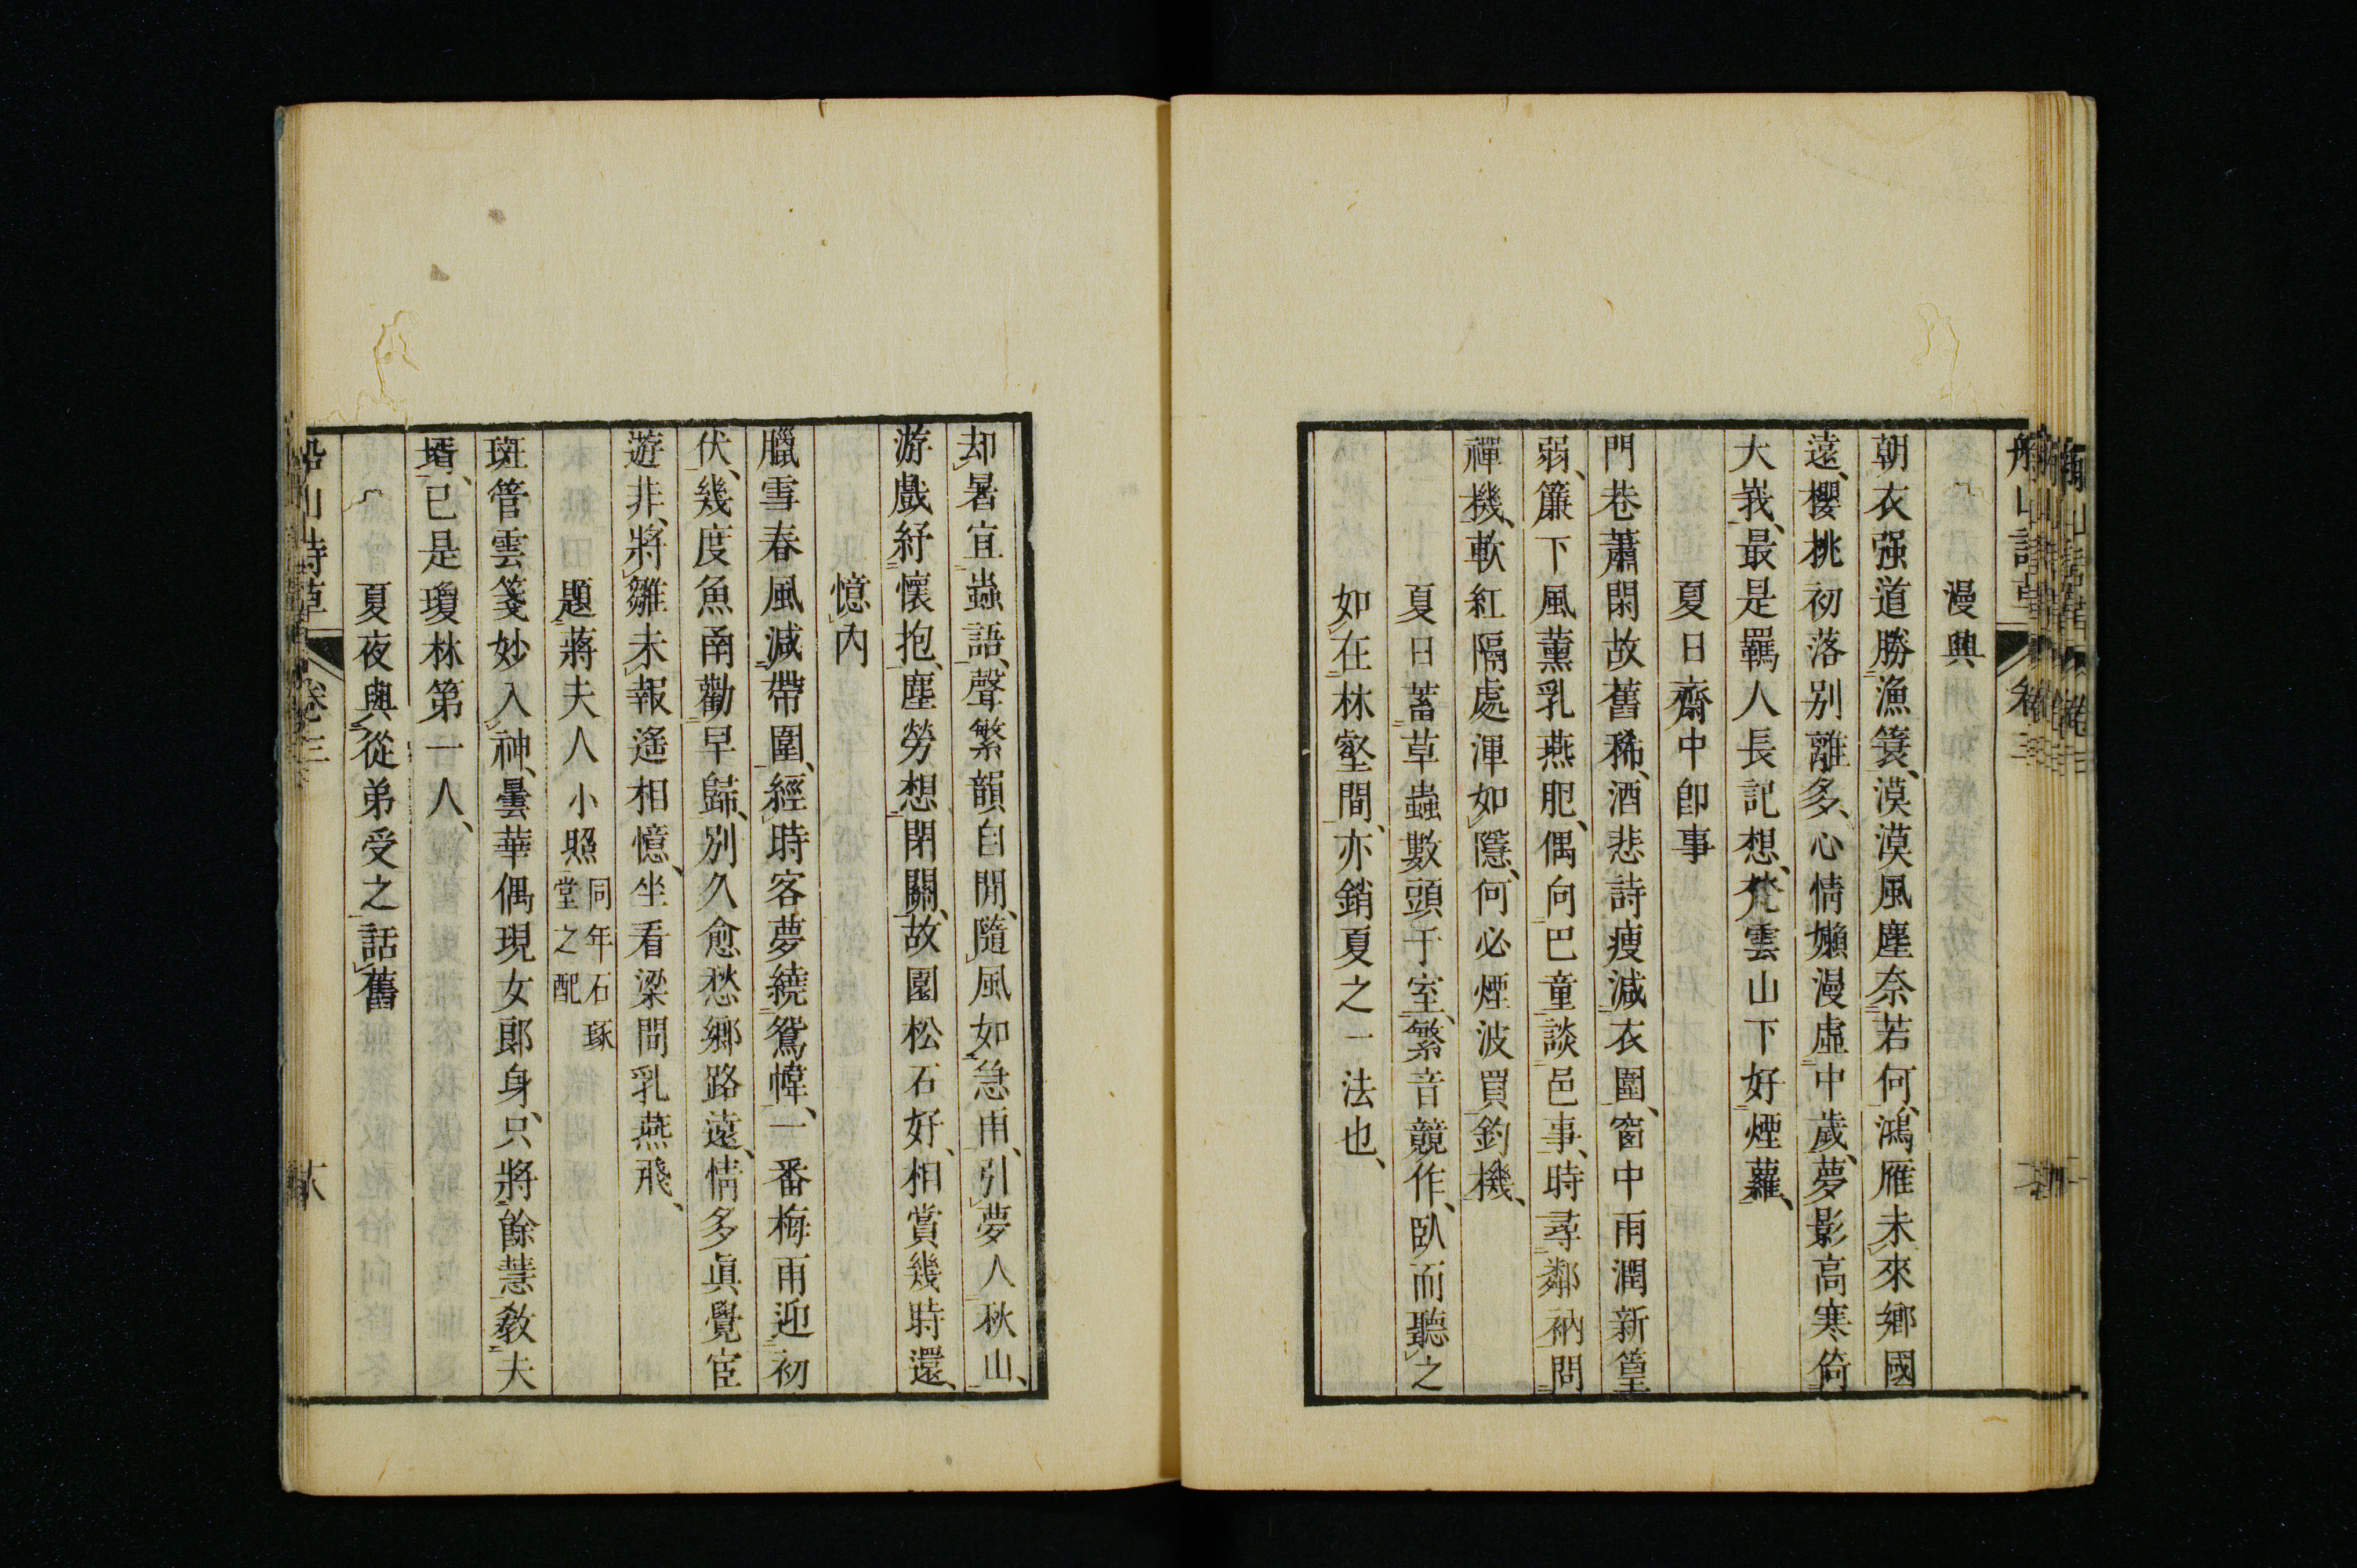 漫興
朝衣强道勝漁簔、漠漠風塵奈若何、鴻雁未來鄉國
遠、櫻桃初落别離多、心情嬾漫虛中歲、夢影高寒倚
大峩、最是羈人長記想、梵雲山下好煙蘿、
夏日齋中卽事
門巷蕭閑故舊稀、酒悲詩瘦減衣圍、窗中雨潤新篁
弱、簾下風薰乳燕肥、偶向巴童談邑事、時尋鄰衲問
禪機、軟紅隔處渾如隱、何必煙波買釣機、
夏日蓄草蟲數頭于室、繁音競作、臥而聽之
如在林壑間、亦銷夏之一法也、
却暑宜蟲語、聲繁韻自閒、隨風如急雨、引夢人秋山、
游戲紓懷抱、塵勞想閉關、故園松石好、相賞幾時還、
憶內
臘雪春風減帶圍、經時客夢繞鴛幃、一番梅雨迎初
伏、幾度魚甬勸早歸、別久愈愁鄉路遠、情多眞覺宦
遊非、將雛未報遙相憶、坐看梁間乳燕飛、
題蔣夫人小照 同年石琢堂之配
斑管雲箋妙入神、曇華偶現女郎身、只將餘慧教夫
壻、已是瓊林第一人、
夏夜與從弟受之話舊
船山詩草 卷三